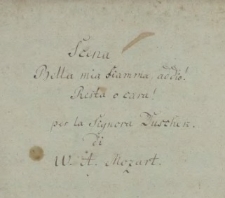 Scena
Bella mia fiamma, addio!
Resta o cara!
per la Signora Duschek.
di
W. A. Mozart.